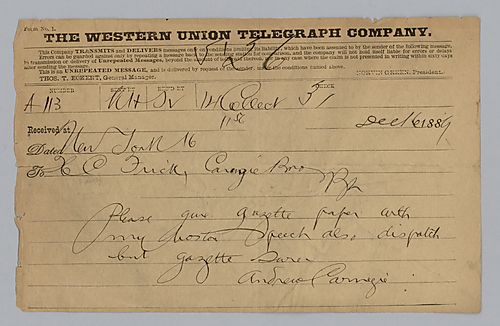 Form No. 1.
THE WESTERN UNION TELEGRAPH COMPANY.
This Company TRANSMITS and DELIVERS messages only on conditions limiting its liability, which have been assented to by the sender of the following message.
Errors can be guarded against only by repeating a message back to the sending station for comparison, and the company will not hold itself liable for errors or delays
in transmission or delivery of Unrepeated Messages, beyond the amount of tolls paid thereon, nor in any case where the claim is not presented in writing within sixty days
after sending the message.
This is an UNREPEATED MESSAGE, and is delivered by request of the sender, under the conditions named above.
THOS. T. ECKERT, General Manager. NORVIN GREEN, President.
NUMBER SENT BY REC'D BY CHECK
A 113 Collect
Received at Dec 16 1889
Dated New York 16
To H C Frick, Carnegie Bros
Please give gazette paper with
my boston speech also dispatch
but gazette
Andrew Carnegie